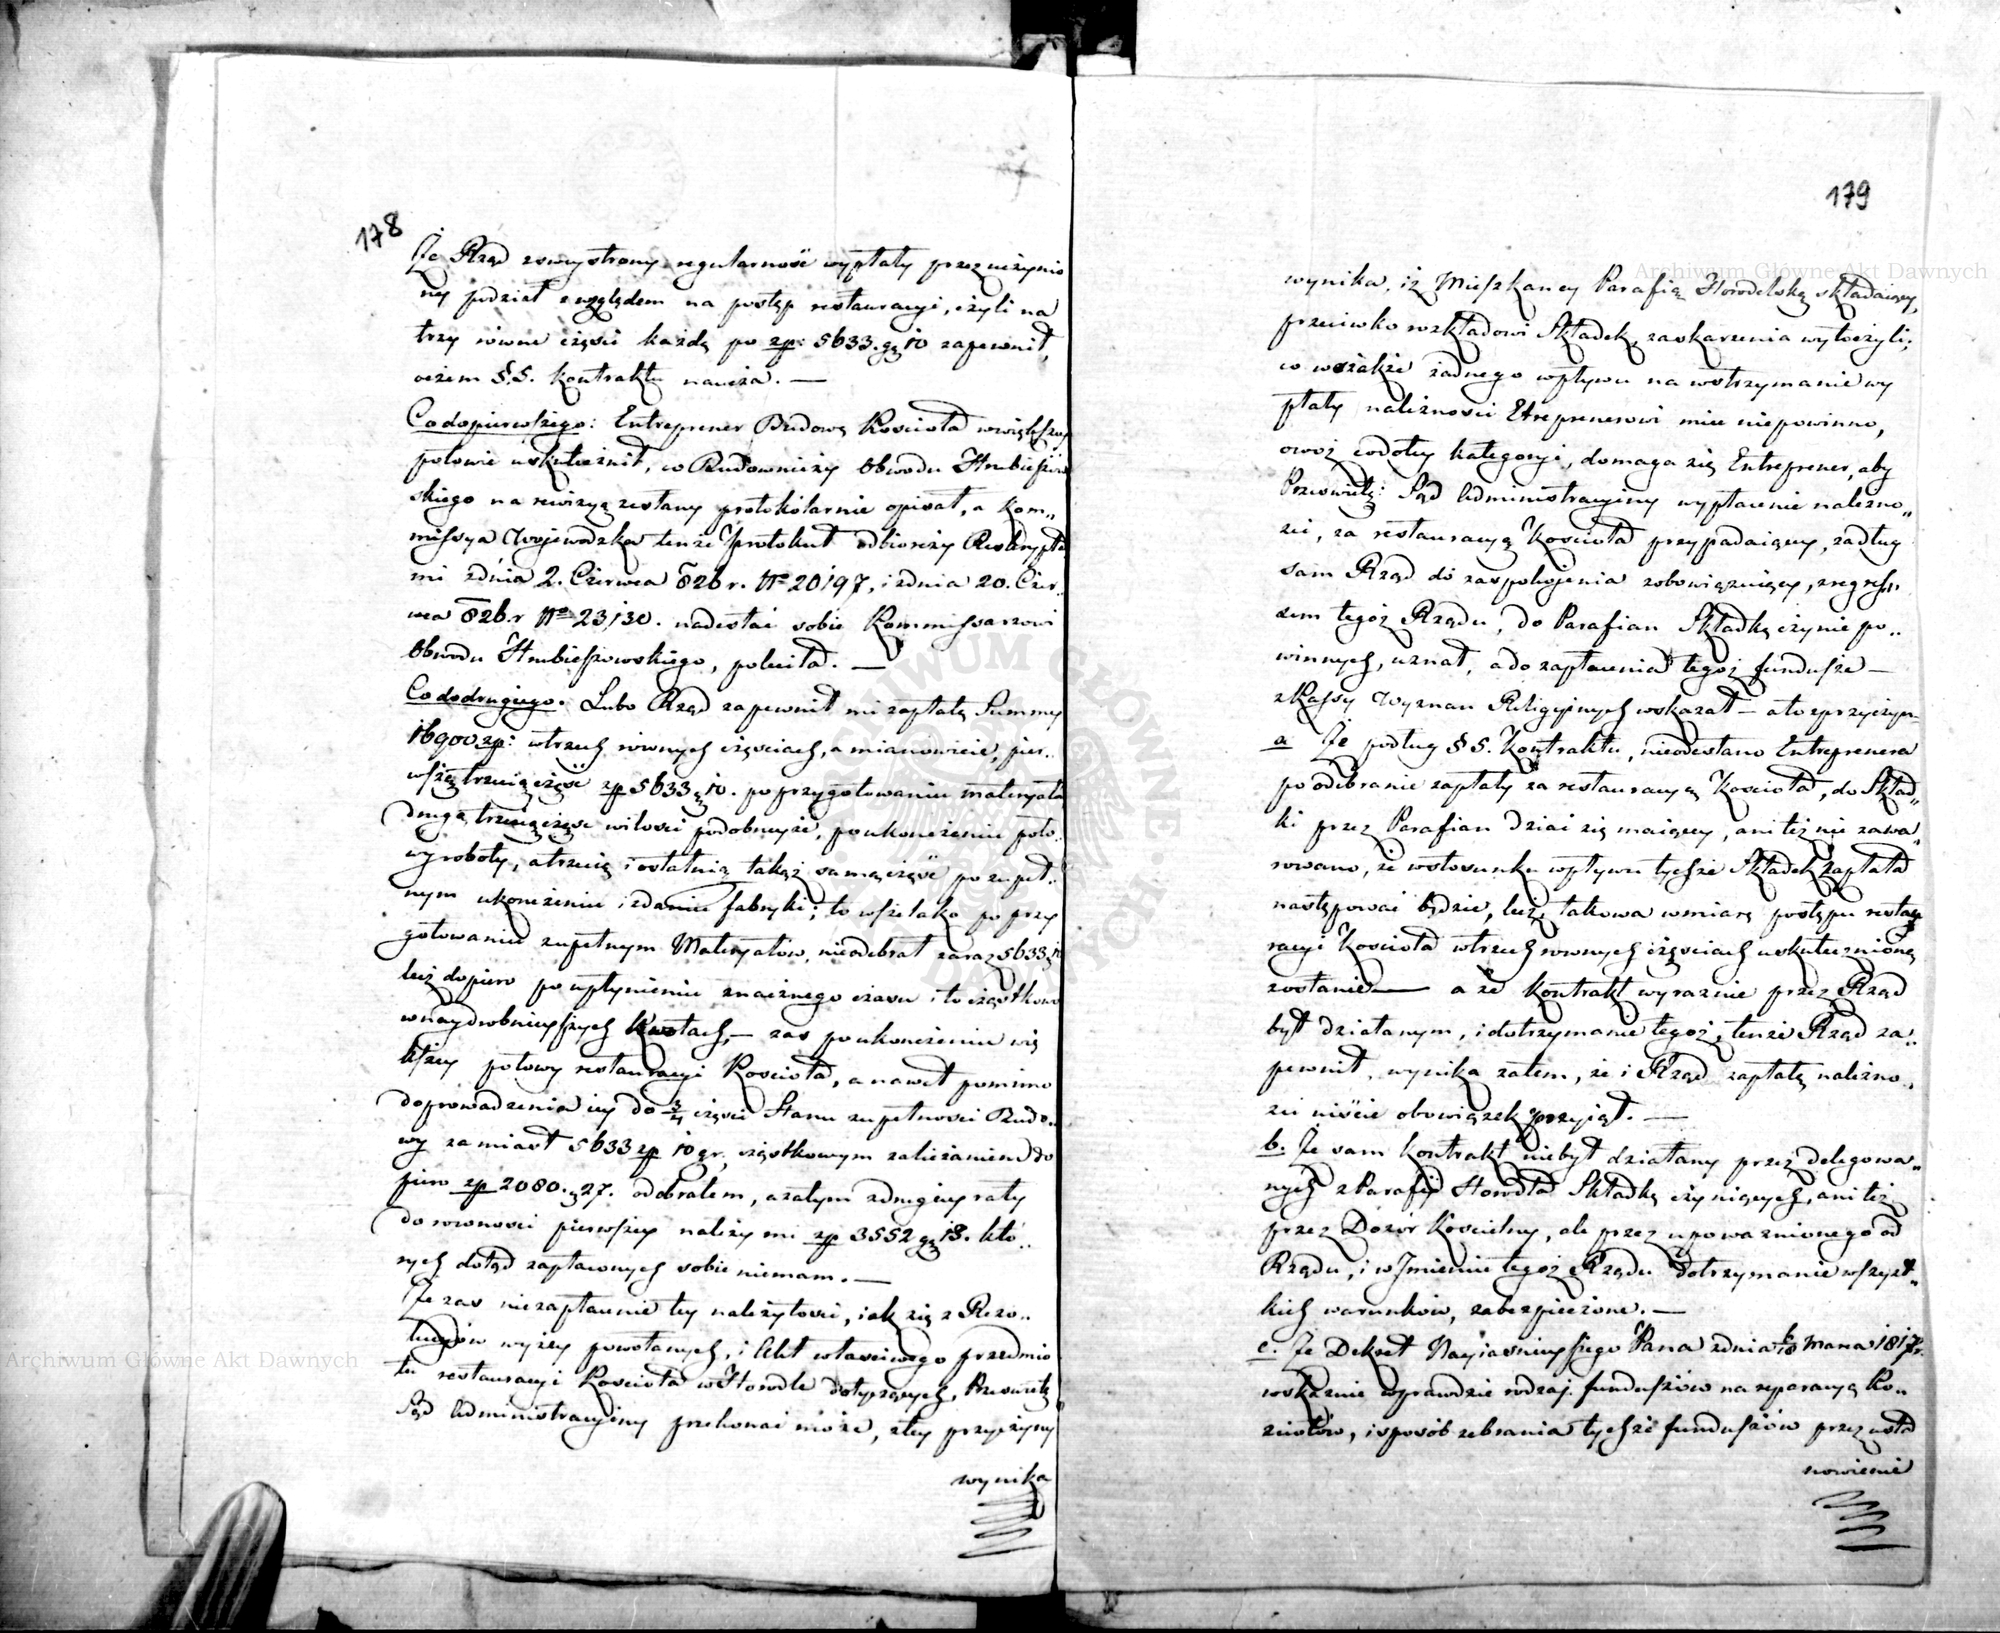 178
Że Rząd zeswey strony regularność wypłaty przez uczynio
ny podział zwzględem na postęp restauracyi, czyli na
trzy równe części każdą po zp: 5633. gr 10 zapewnił,
oczem §. 5. Kontraktu naucza. —
Co do pierwszego: Entreprener Budowę Kościoła wwiększey
połowie uskutecznił, co Budowniczy Obwodu Hrubieszow
skiego na rewizyą zesłany protokólarnie opisał, a Kom„
missya Woiewódzka tenże protokuł odbiorczy Reskrypta
mi zdnia 2. Czerwca 826 r. No 20197, i zdnia 20. Czer„
wca 826. r No 23130. nadesłać sobie Kommissarzowi
Obwodu Hrubieszowskiego, poleciła. —
Co do drugiego. Lubo Rząd zapewnił mi zapłatę Summy
16900 zp: wtrzech równych częściach, a mianowicie, pier„
wszą trzecią część zp 5633 gr 10. po przygotowaniu materyału
drugą trzecią część wilości podobneyże, po ukończeniu poło„
wy roboty, a trzecią i ostatnią takąż samą część po zupeł„
nym ukończeniu i zdaniu fabryki; to wszelako po przy
gotowaniu zupełnym Materyałów, nieodebrał zaraz 5633 gr 10
lecz dopiero po upłynieniu znacznego czasu i to cząstkowo
wnaydrobnieyszych Kwotach, — zaś po ukończeniu wię
kszey połowy restauracyi Kościoła, a nawet pomimo
doprowadzenia iey do 3/4 części Stanu zupełności Budo„
wy zamiast 5633 zp 10 gr, cząstkowym zaliczaniem do
piero zp 2080. gr 27. odebrałem, azatym zdrugiey raty
do rowności pierwszey należy mi zp 3552 gr 13. któ„
rych dotąd zapłaconych sobie niemam. —
Że zas niezapłacenie tey należytości, iak się z Rezo„
lucyów wyżey powołanych, i Akt właściwego przedmio
tu restauracyi Kościoła wHorodle dotyczących, Prześwietny
Sąd Administracyiny przekonać może, ztey przyczyny
wynika
179
wynika, iż Mieszkańcy Parafią Horodelską składaiący,
przeciwko rozkładowi Składek, zaskarżenia wytoczyli;
co wszakże żadnego wpływu na wstrzymanie wy
płaty należności Etreprenerowi mieć niepowinno,
owoż codotey kategoryi, domaga się Entreprener, aby
Prześwietny: Sąd Administracyiny wypłacenie należno„
ści, za restauracyą Kościoła przypadaiącey, zadług
sam Rząd do zaspokojenia zobowiązuiący, zregress„
sem tegoż Rządu, do Parafian Składkę czynić po„
winnych, uznał, a do zapłacenia tegoż fundusze —
zKassy Wyznań Religiynych wskazał — a to zprzyczyn
a Że podług § 5. Kontraktu, nieodesłano Entreprenera
po odebranie zapłaty za restauracyą Kościoła, do Skład„
ki przez Parafian dziać się maiącey, ani też nie zawa„
rowano, że wstosunku wpływu tychże Składek zapłata
następować będzie, lecz, takowa wmiarę postępu restau
racyi Kościoła wtrzech rownych częściach uskutecznioną
zostanie — a że Kontrakt wyraźnie przez Rząd
był działanym, i dotrzymanie tegoż, tenże Rząd za„
pewnił, wynika zatem, że i Rząd zapłatę należno„
ści niście obowiązek przyiął. —
b. Że sam Kontrakt niebył działany przez delegowa„
nych zParafii Horodła Składkę czyniących, ani też
przez Dozór Kościelny, ale przez upoważnionego od
Rządu, i w Jmieniu tegoż Rządu dotrzymanie wszyst„
kich warunków, zabezpieczone. —
c. Że Dekret Nayiaśnieyszego Pana zdnia 6/18 Marca 1817 r.
wskaznie wprawdzie rodzaj funduszów na reparacyą Ko„
ściołów, i sposób zebrania tychże funduszów przez usta
nowienie